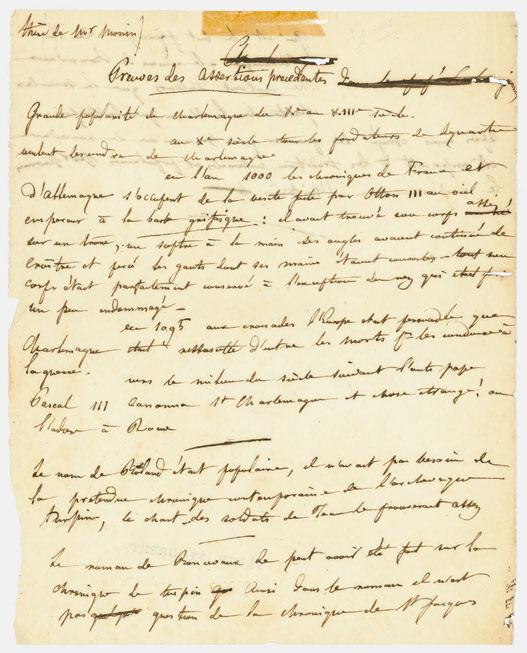 thèse de Mr Monin
Preuves des assertions précédentes
Grande popularité de charlemagne du Xe au XIIIe siècle.
au Xe siècle tous les fondateurs de dynastie
veulent descendre de charlemagne
en l'an 1000 les chroniques de France et
d'allemagne s'occupent de la visite faite par Otton III au vieil
empereur à la barbe grifaigne : il avait trouvé son corps assis
sur un trone, un sceptre à la main - Les ongles avaient continué de
croître et percé les gants dont ses mains étaient couvertes - tout son
corps était parfaitement conservé à l'exception du nez qui
un peu endommagé -
en 1095 aux croisades l'Europe était persuadée que
Charlemagne était ressuscité d'entre les morts pr les conduire à
la guerre.
vers le milieu du siècle suivant l'anti pape
Pascal III canonisa St Charlemagne et chose étrange! on
l'adore à Rome
Le nom de Roland était populaire, il n'avait pas besoin de
la prétendue chronique contemporaine de l'archevêque
turpin, le chant des soldats de le prouverait assez
Le roman de Roncevaux ne peut avoir été fait sur la
chronique de turpin Ainsi dans le roman il n'est
pas question de la chronique de St Jacques